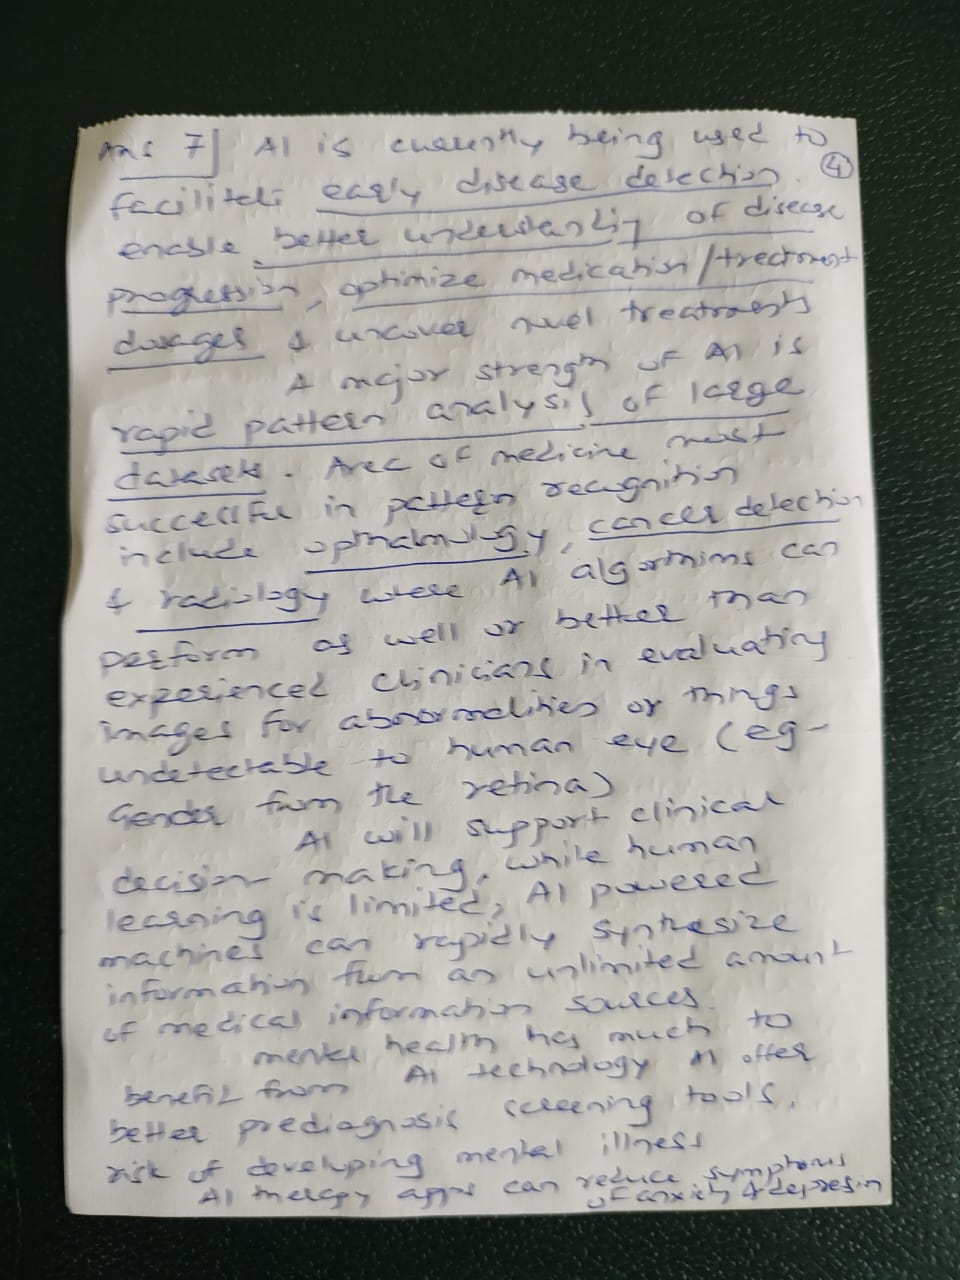 Ans 7] AI is currently being used to
④
facilitate early disease detection,
enable better understanding of disease
progression, optimize medication/treatment
dosages & uncover novel treatments
A major strength of AI is
rapid pattern analysis of large
datasets. Area of medicine most
successful in pattern recognition
include opthalmology, cancer detection
& radiology where AI algorithims can
perform as well or better than
experienced clinicians in evaluating
images for abnormalities or things
undetectable to human eye (eg-
Gender from the retina)
AI will support clinical
decision making, while human
learning is limited, AI powered
machines can rapidly synthesize
information from an unlimited amount
of medical information sources.
mental health has much to
benefit from AI technology AI offer
better prediagnosis screening tools,
risk of developing mental illness
AI therapy apps can reduce symptoms
of anxiety & depression